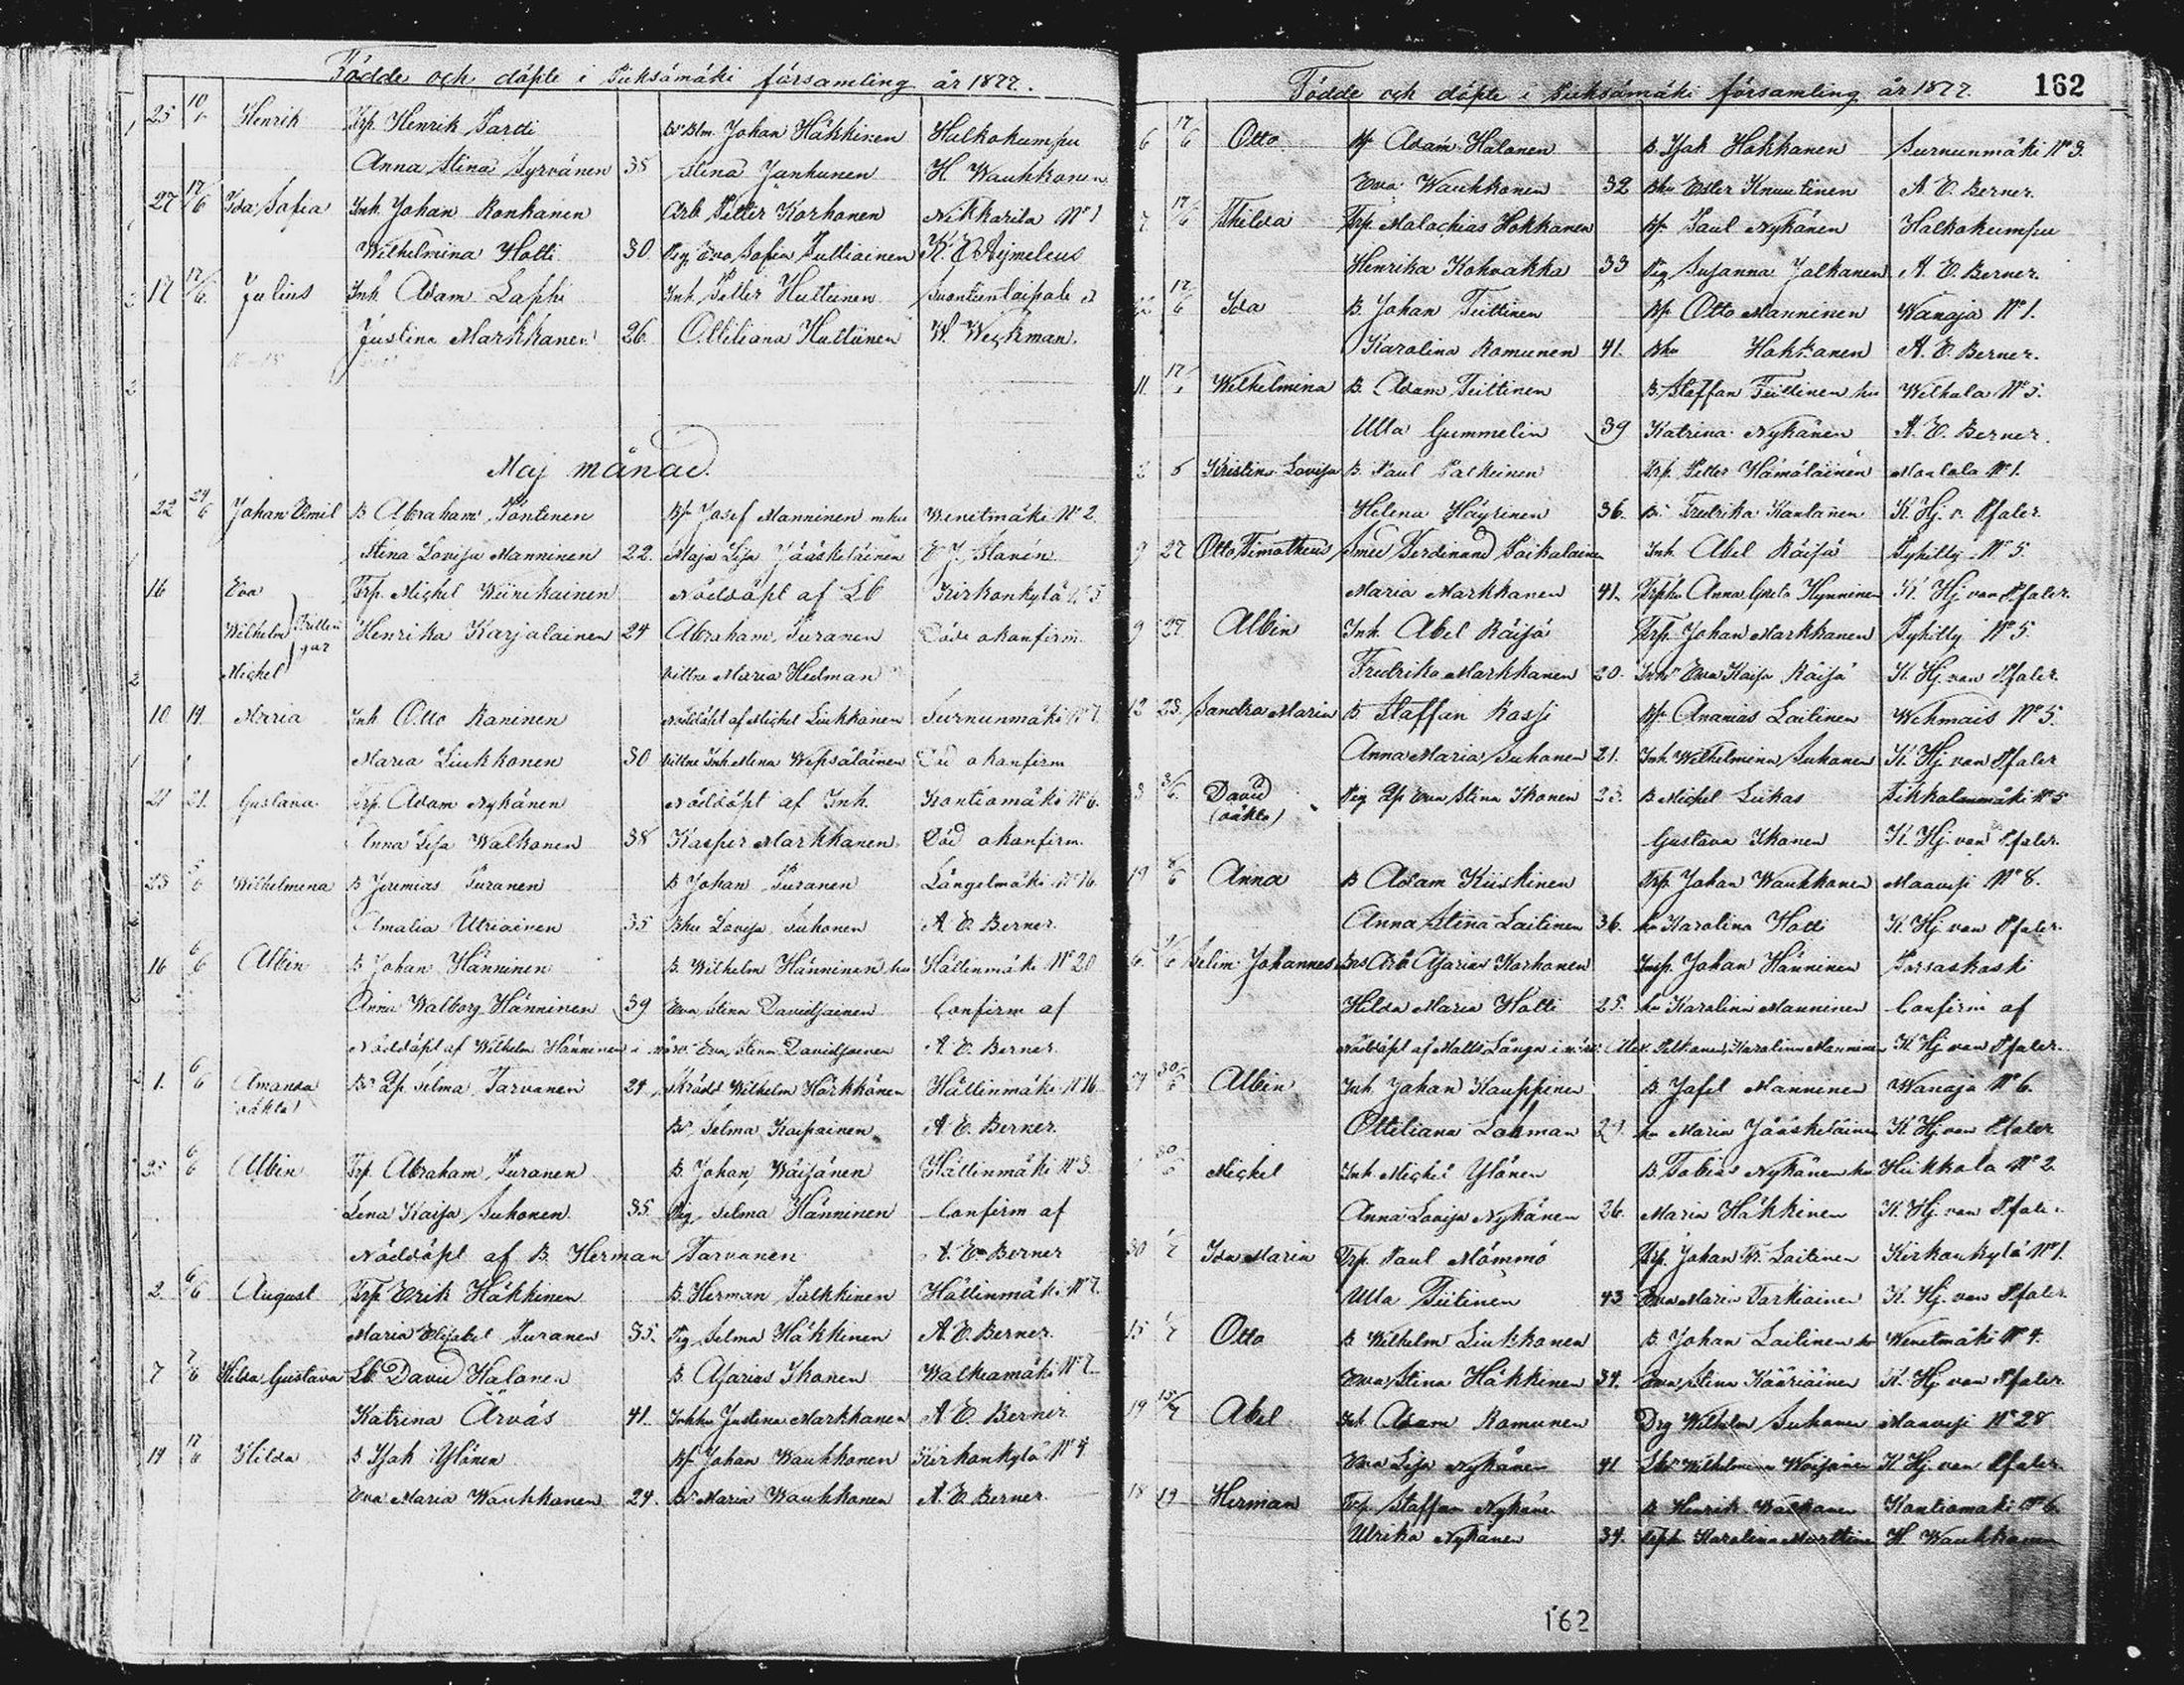 Födde och döpte i Pieksämäki församling år 1877.
25 10/ Henrik Trp. Henrik Pardi Johan Häkkinen Halkokumpu
Anna Stina Syrvänen 38 Stina Janhunen H. Wauhkonen
27 17/6 Ida Sofia Inh. Johan Ronkanen Arb. Petter Korhonen Nikkarila No 1
Wilhelmina Hotti 30 Pig. Eva Sofia Pulliainen K. E. Aejmeleus
17 17/6 Julius Inh. Adam Lappi Inh. Petter Huttunen Suontientaipale
Justina Markkanen 26. Ottiliana Huttunen W. Weckman.
Maj månad.
22 24/6 Johan Emil B. Abraham Pöntinen Bs. Josef Manninen m.hu Wenetmäki No 2.
Stina Lovisa Manninen 22. Maja Lisa Jääskeläinen E. J. Slavén
16 Eva Trp. Michel Wiinikainen Nöddöpt af Lb Kirkonkylä No 5
Wilhelm Henrika Karjalainen 24 Abraham Puranen Döde okonfirm.
Michel vittne Maria Hedman
10 14. Maria Inh. Otto Raninen Nöddöpt af Michel Liukkonen Surnunmäki No 7.
Maria Liukkonen 30 vittne Inh. Stina Wepsäläinen Död okonfirm
21 21. Gustava Trp. Adam Nykänen Nöddöpt af Inh. Kontiomäki No 6.
Anna Lisa Walkonen 38 Kasper Markkanen Död okonfirm.
23 5/6 Wilhelmina B. Jeremias Puranen B. Johan Puranen Längelmäki No 16
Amalia Utriainen 35 Bhu Lovisa Suhonen A. E. Berner.
16 6/6 Albin B. Johan Hänninen B. Wilhelm Hänninen hu Hällinmäki No 20
Anna Walborg Hänninen 39 Eva Stina Davidsainen Confirm af
Nöddöpt af Wilhelm Hänninen i närv. Eva Stina Davidsainen A. E. Berner.
1. 6/6 Amanda Bd. Qp. Selma Tarvanen 24. Skrädd. Wilhelm Härkkönen Hällinmäki No 16
(oäkta) Bd. Selma Kaipainen A. E. Berner.
25 6/6 Albin Trp. Abraham Puranen B. Johan Wäisänen Hällinmäki No 3.
Lena Kaisa Suhonen 35. Pig. Selma Hänninen Confirm af
Nöddöpt af B. Herman Tarvanen A. E. Berner
2. 6/6 August Trp. Erik Häkkinen B. Herman Pulkkinen Hällinmäki No 7.
Maria Elisabet Puranen 35. Pig. Selma Häkkinen A. E. Berner.
7 7/6 Hilda Gustava Lb. David Halonen B. Asarias Ikonen Walkiamäki No 2
Katrina Ärväs 41. Inhhu Justina Markkanen A. E. Berner
14 17/6 Hilda B. Isak Ylönen Bs. Johan Waukkonen Kirkonkylä No 4
Eva Maria Waukkonen 24. Bd. Maria Waukkonen A. E. Berner.
Födde och döpte i Pieksämäki församling år 1877. 162
6 17/6 Otto Bs. Adam Halonen B. Isak Hokkanen Surnunmäki No 3.
Eva Wauhkonen 32 Bhu Ester Knuutinen A. E. Berner.
7 17/6 Thilda Trp. Malachias Hokkanen Bs. Paul Nykänen Halkokumpu
Henrika Kohvakka 33 Pig. Susanna Jalkanen A. E. Berner.
22 17/6 Ida B. Johan Tiittinen Bs. Otto Manninen Wanaja No 1.
Karolina Romunen 41. Bhu Hokkanen A. E. Berner.
11. 17/ Wilhelmina B. Adam Tiittinen B. Staffan Tiittinen hu Wilhala No 5.
Ulla Gummelin 39 Katrina Nykänen A. E. Berner.
6 Kristina Lovisa B. Paul Parkkinen Trp. Petter Hämäläinen Montola No 1.
Helena Häyrinen 36. Bd. Fredrika Kantanen K. Hj. v. Pfaler.
9 27 Otto Timotheus Smed Ferdinand Paikalainen Inh. Abel Räisä Pyhitty No 5
Maria Markkanen 41. Trphu Anna Greta Hynninen K. Hj. von Pfaler.
9 27 Albin Inh. Abel Räisä Trp. Johan Markkanen Pyhitty No 5.
Fredrika Markkanen 20. Inhd. Eva Kaisa Räisä K. Hj. von Pfaler.
12 23. Sandra Maria B. Staffan Rossi Bs. Ananias Laitinen Wehmais No 5.
Anna Maria Suhonen 21. Inh. Wilhelmina Suhonen K. Hj. von Pfaler
3 3/6. David Pig. Qp. Eva Stina Ikonen 23. B. Michel Liikas Tikkalanmäki No 5
(oäkta) Gustava Ikonen K. Hj. von Pfaler.
19 8/6 Anna B. Adam Kiiskinen Trp. Johan Waukkonen Maavesi No 8.
Anna Stina Laitinen 36. hu Karolina Hotti K. Hj. von Pfaler.
6. Selim Johannes Arb. Asarias Korhonen Insp. Johan Hänninen Porsaskoski
Hilda Maria Hotti 25. hu Karolina Manninen Confirm af
Nöddöpt af Matts Långa i närv. Karolina Manninen K. Hj. von Pfaler.
Albin Inh. Johan Kauppinen B. Josef Manninen Wanaja No 6.
Ottiliana Lohman hu Maria Jääskeläinen K. Hj. von Pfaler
30/ Michel Inh. Michel Ylönen B. Tobias Nykänen hu Heikkola No 2.
Anna Lovisa Nykänen 26. Maria Häkkinen K. Hj. von Pfaler.
30 1/7 Ida Maria Trp. Paul Mömmö Trp. Johan Fr. Laitinen Kirkonkylä No 1.
Ulla Tiitinen 43 Eva Maria Tarkiainen K. Hj. von Pfaler
15 1/7 Otto B. Wilhelm Liukkonen B. Johan Laitinen hu Wenetmäki No 4.
Eva Stina Häkkinen 34. Eva Stina Kääriäinen K. Hj. von Pfaler
19 15/7 Abel Inh. Adam Romunen Drg. Wilhelm Suhonen Maavesi No 28
Eva Lisa Nykänen 41 Wilhelmina Wäisänen K. Hj. von Pfaler.
18 19 Herman Trp. Staffan Nykänen B. Henrik Kontiomäki No 6.
Ulrika Nykänen 34. Karolina Marttinen H. Waukkonen
162